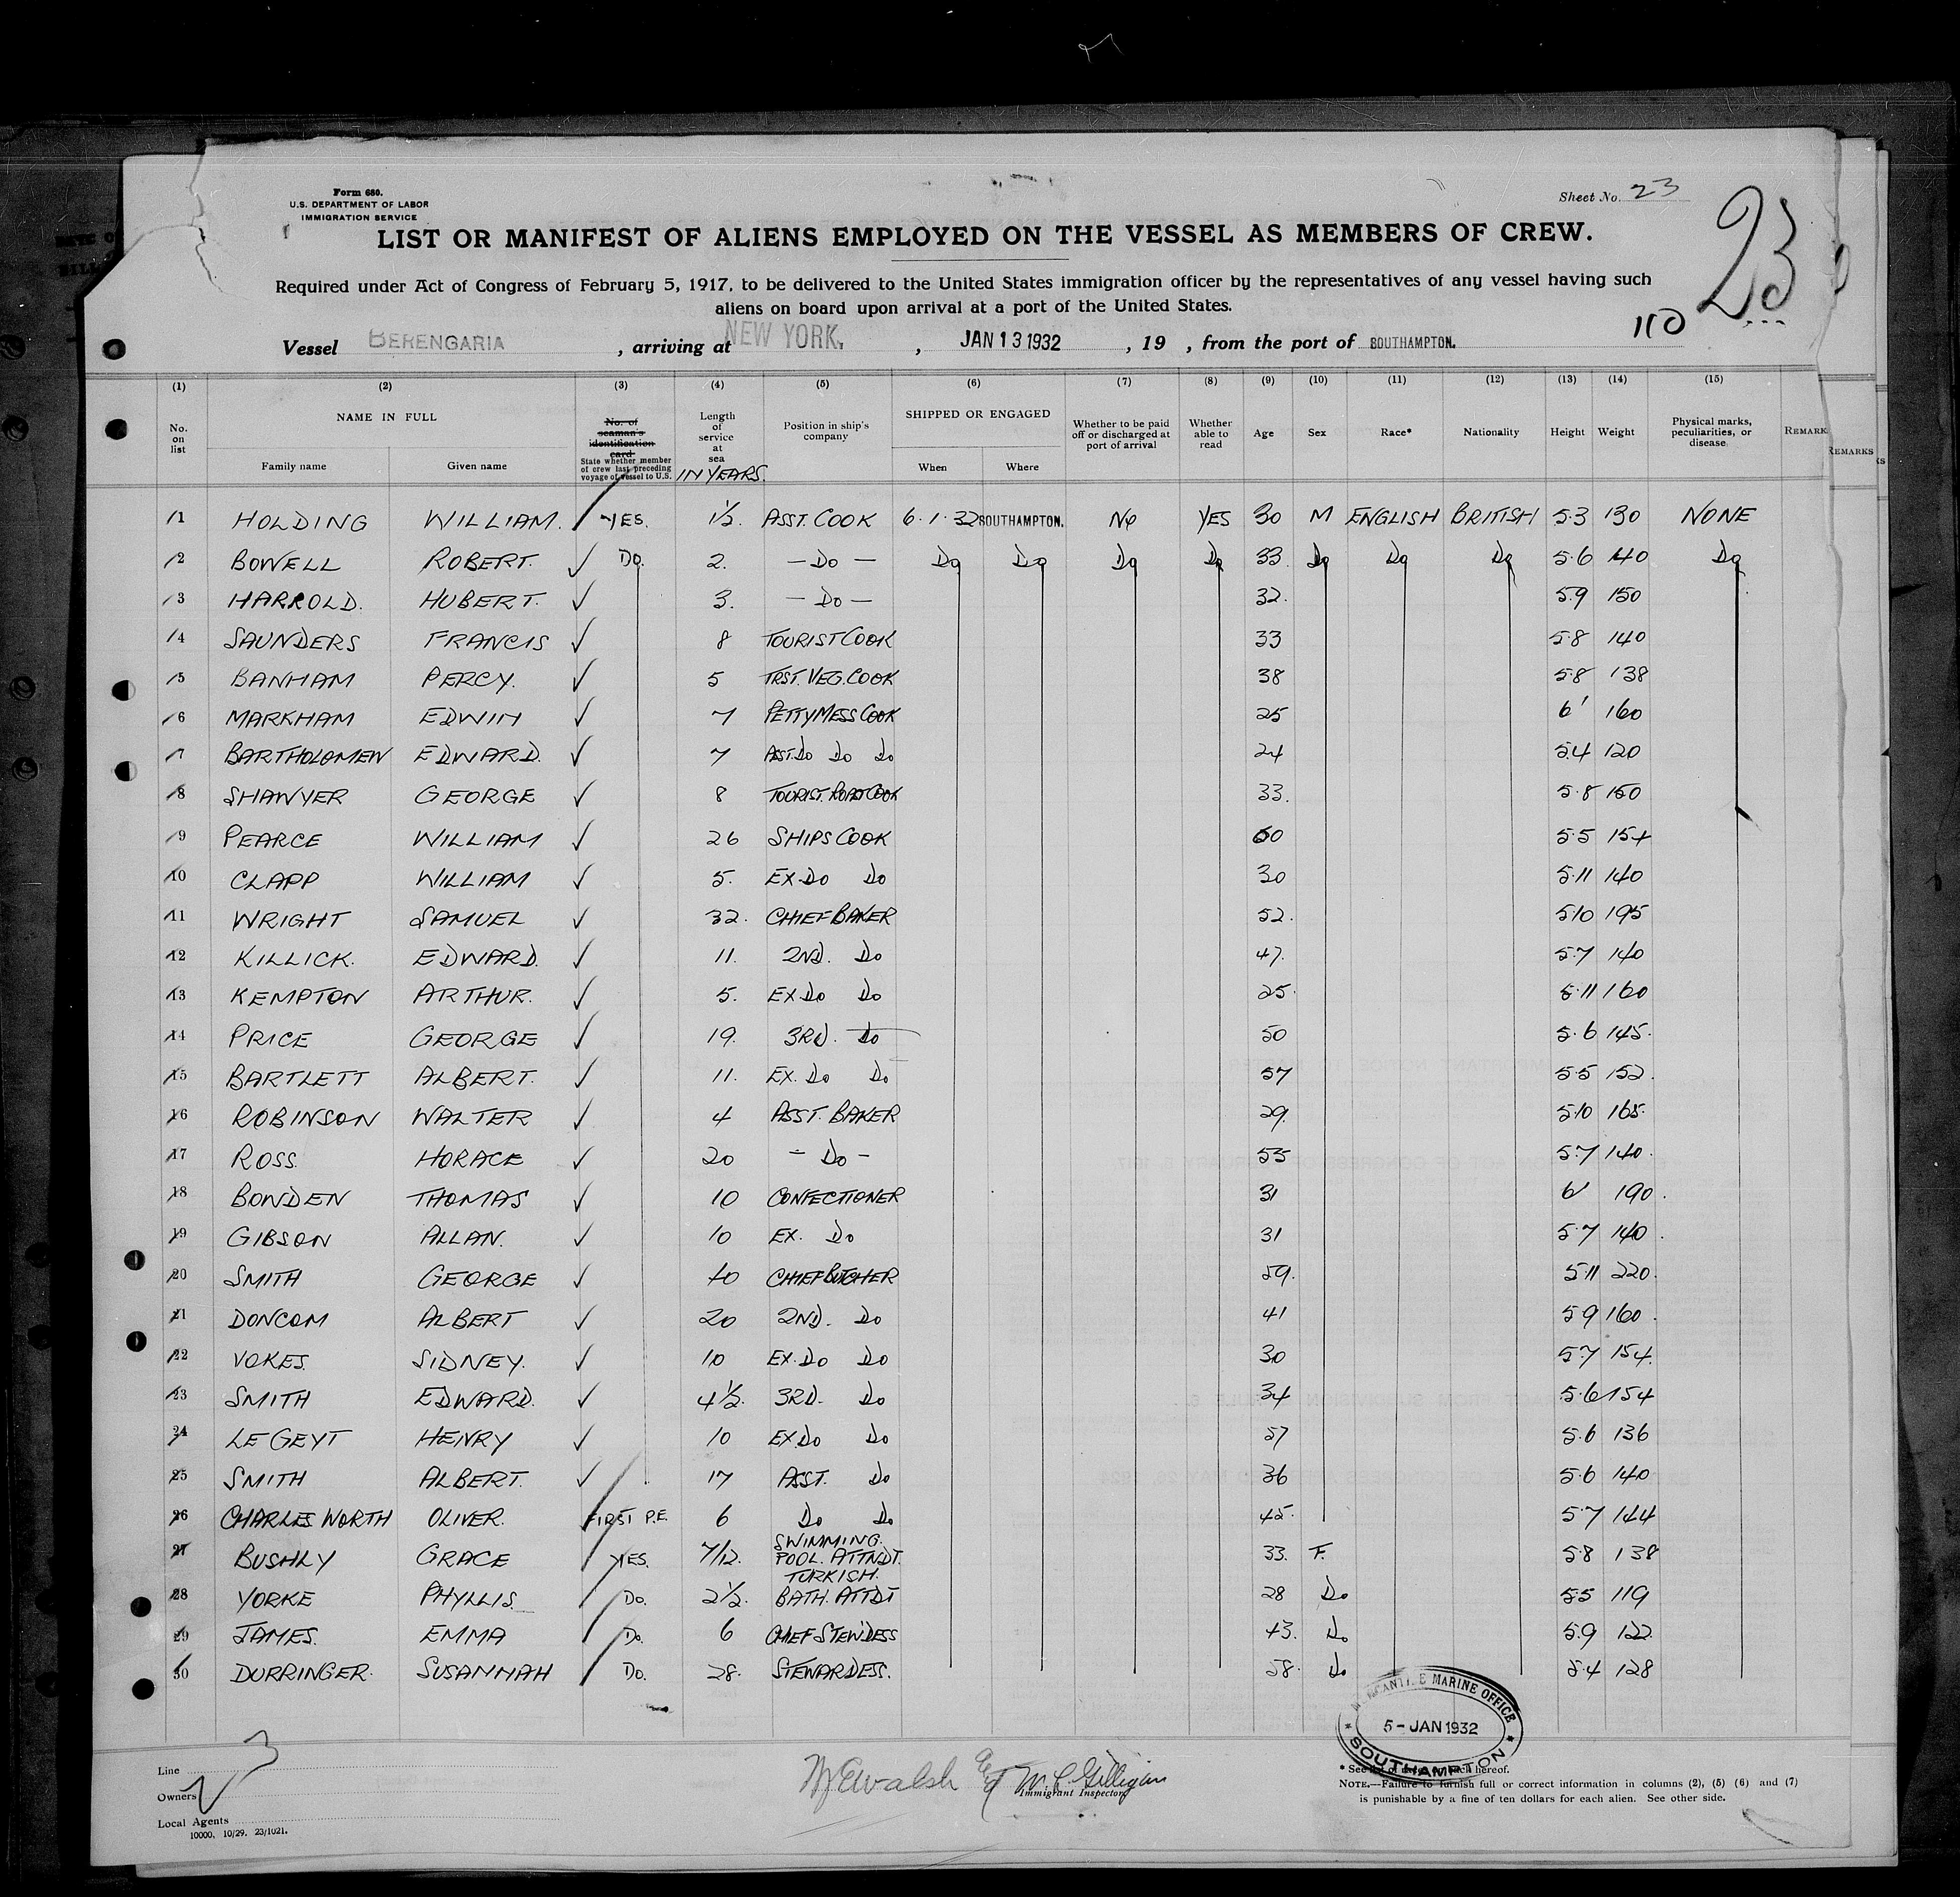 Form 680.
U.S. DEPARTMENT OF LABOR
IMMIGRATION SERVICE
Sheet No. 23
23
LIST OR MANIFEST OF ALIENS EMPLOYED ON THE VESSEL AS MEMBERS OF CREW.
Required under Act of Congress of February 5, 1917, to be delivered to the United States immigration officer by the representatives of any vessel having such
aliens on board upon arrival at a port of the United States.
110
Vessel BERENGARIA, arriving at NEW YORK, , JAN 13 1932, 19 , from the port of SOUTHAMPTON.
(1) (2) (3) (4) (5) (6) (7) (8) (9) (10) (11) (12) (13) (14) (15)
No. on list NAME IN FULL Family name Given name No. of seaman's identification card State whether member of crew last preceding voyage of vessel to U.S. Length of service at sea IN YEARS. Position in ship's company SHIPPED OR ENGAGED When Where Whether to be paid off or discharged at port of arrival Whether able to read Age Sex Race* Nationality Height Weight Physical marks, peculiarities, or disease REMARK REMARKS
1 HOLDING WILLIAM. YES. 1½. ASST. COOK 6.1.32 SOUTHAMPTON. No YES 30 M ENGLISH BRITISH 5.3 130 NONE
2 BOWELL ROBERT. Do. 2. — Do — Do Do Do Do 33 Do Do Do 5.6 140 Do
3 HARROLD. HUBERT. 3. — Do — 32. 5.9 150
4 SAUNDERS FRANCIS 8 TOURIST COOK 33 5.8 140
5 BANHAM PERCY. 5 TRST. VEG. COOK 38 5.8 138
6 MARKHAM EDWIN 7 PETTY MESS COOK 25 6' 160
7 BARTHOLOMEW EDWARD. 7 ASST. Do Do Do 24 5.4 120
8 SHAWYER GEORGE 8 TOURIST. ROAST COOK 33. 5.8 150
9 PEARCE WILLIAM 26 SHIPS COOK 60 5.5 154
10 CLAPP WILLIAM 5. EX Do Do 30 5.11 140
11 WRIGHT SAMUEL 32. CHIEF BAKER 52. 5.10 195
12 KILLICK. EDWARD. 11. 2ND. Do 47. 5.7 140
13 KEMPTON ARTHUR. 5. EX Do Do 25. 5.11 160
14 PRICE GEORGE 19. 3RD. Do 50 5.6 145.
15 BARTLETT ALBERT. 11. EX. Do Do 57 5.5 152.
16 ROBINSON WALTER 4 ASST. BAKER 29. 5.10 165.
17 ROSS. HORACE 20 - Do - 53 5.7 140.
18 BOWDEN THOMAS 10 CONFECTIONER 31 6' 190.
19 GIBSON ALLAN. 10 EX. Do 31 5.7 140.
20 SMITH GEORGE 40 CHIEF BUTCHER 59. 5.11 220.
21 DONCOM ALBERT 20 2ND. Do 41 5.9 160.
22 VOKES. SIDNEY. 10 EX. Do Do 30 5.7 154.
23 SMITH EDWARD. 4½. 3RD. Do 34 5.6 154
24 LE GEYT HENRY 10 EX. Do Do 57 5.6 136
25 SMITH ALBERT. 17 ASST. Do 36 5.6 140
26 CHARLESWORTH OLIVER. FIRST P.E. 6 Do Do 45. 5.7 144
27 BUSHLY GRACE YES. 7/12. SWIMMING. POOL. ATTNDT. 33. F. 5.8 138
28 YORKE PHYLLIS. Do. 2½. TURKISH. BATH. ATTDT 28 Do 5.5 119
29 JAMES. EMMA Do. 6 CHIEF STEWDESS 43. Do 5.9 122
30 DURRINGER. SUSANNAH Do. 28. STEWARDESS. 58. Do 5.4 128
MERCANTILE MARINE OFFICE
5 - JAN 1932
SOUTHAMPTON
Line
Owners
Local Agents
10000, 10/29. 23/1021.
Immigrant Inspector
NOTE.—Failure to furnish full or correct information in columns (2), (5) (6) and (7)
is punishable by a fine of ten dollars for each alien. See other side.